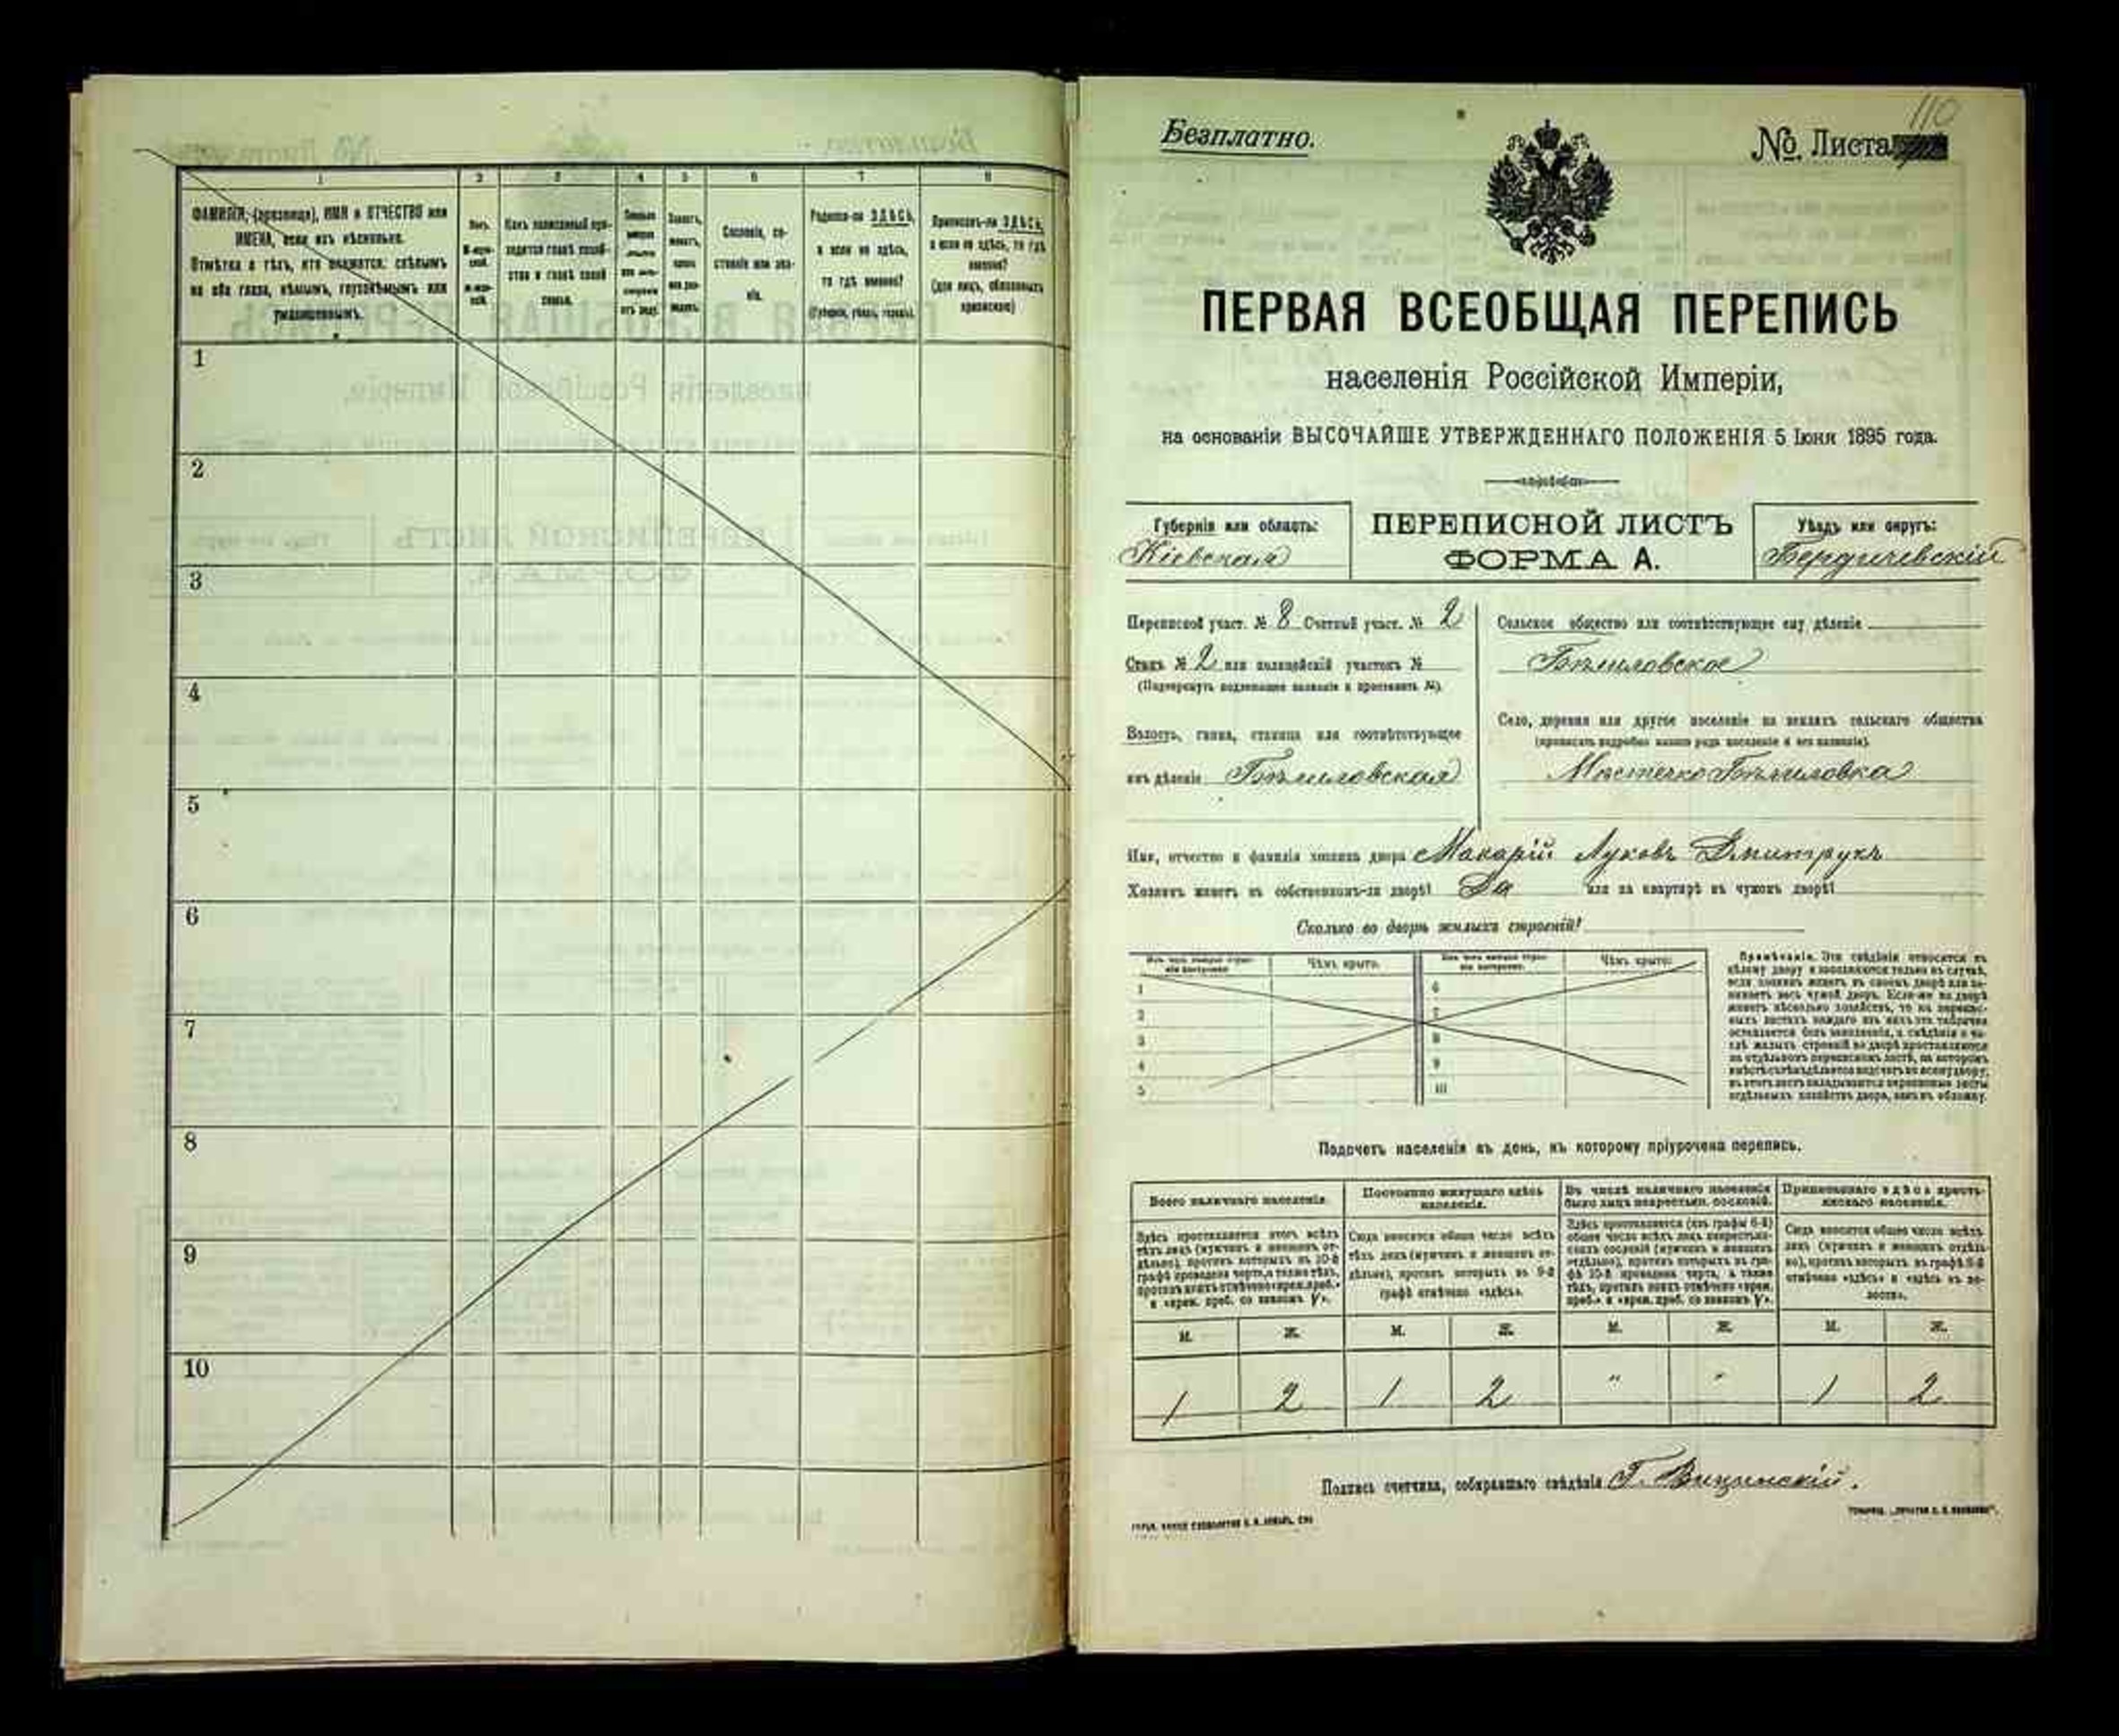 1 2 3 4 5 6 7 8
ФАМИЛІЯ, (прозвище), ИМЯ и ОТЧЕСТВО или
ИМЕНА, если ихъ нѣсколько.
Отмѣтка о тѣхъ, кто окажется: слѣпымъ
на оба глаза, нѣмымъ, глухонѣмымъ или
умалишеннымъ.
Полъ.
Какъ записанный при-
ходится главѣ хозяй-
ства и главѣ своей
семьи.
Сословіе, со-
стояніе или зва-
ніе.
Родился-ли ЗДѢСЬ,
а если не здѣсь,
то гдѣ именно?
(Губернія, уѣздъ, городъ).
Приписанъ-ли ЗДѢСЬ,
а если не здѣсь, то гдѣ
именно?
(для лицъ, обязанныхъ
припискою)
1
2
3
4
5
6
7
8
9
10
110
Безплатно.
№. Листа
ПЕРВАЯ ВСЕОБЩАЯ ПЕРЕПИСЬ
населенія Россійской Имперіи,
на основаніи ВЫСОЧАЙШЕ УТВЕРЖДЕННАГО ПОЛОЖЕНІЯ 5 Іюня 1895 года.
Губернія или область:
Кіевская
ПЕРЕПИСНОЙ ЛИСТЪ
ФОРМА А.
Уѣздъ или округъ:
Бердичевскій
Переписной участ. № 8 Счетный участ. № 2
Станъ № 2 или полицейскій участокъ №
(Подчеркнуть подлежащее названіе и проставить №).
Волость, гмина, станица или соотвѣтствующее
имъ дѣленіе Бѣлиловская
Сельское общество или соотвѣтствующее ему дѣленіе
Бѣлиловское
Село, деревня или другое поселеніе на земляхъ сельскаго общества
(прописать подробно какого рода поселеніе и его названіе).
Мѣстечко Бѣлиловка
Имя, отчество и фамилія хозяина двора Макарій Луковъ Дмитрукъ
Хозяинъ живетъ въ собственномъ-ли дворѣ? Да или на квартирѣ въ чужомъ дворѣ?
Сколько во дворѣ жилыхъ строеній?
Изъ чего жилыя строе-
нія построены.
Чѣмъ крыто.
Изъ чего жилыя строе-
нія построены.
Чѣмъ крыто.
1 6
2 7
3 8
4 9
5 10
Примѣчаніе. Эти свѣдѣнія относятся къ
цѣлому двору и заполняются только въ случаѣ,
если хозяинъ живетъ въ своемъ дворѣ или за-
нимаетъ весь чужой дворъ. Если-же во дворѣ
живетъ нѣсколько хозяйствъ, то на перепис-
ныхъ листахъ каждаго изъ нихъ эта табличка
оставляется безъ заполненія, а свѣдѣнія о чи-
слѣ жилыхъ строеній во дворѣ проставляются
на отдѣльномъ переписномъ листѣ, на которомъ
вмѣстѣ съ тѣмъ дѣлается подсчетъ по всему двору;
въ этотъ листъ вкладываются переписные листы
отдѣльныхъ хозяйствъ двора, какъ въ обложку.
Подсчетъ населенія въ день, къ которому пріурочена перепись.
Всего наличнаго населенія.
Здѣсь проставляется итогъ всѣхъ
тѣхъ лицъ (мужчинъ и женщинъ от-
дѣльно), противъ которыхъ въ 10-й
графѣ проведена черта, а также тѣхъ,
противъ коихъ отмѣчено «врем. преб.»
и «врем. преб. со знакомъ V».
Постоянно живущаго здѣсь
населенія.
Сюда вносится общее число всѣхъ
тѣхъ лицъ (мужчинъ и женщинъ от-
дѣльно), противъ которыхъ въ 9-й
графѣ отмѣчено «здѣсь».
Въ числѣ наличнаго населенія
было лицъ некрестьян. сословій.
Здѣсь проставляется (изъ графы 6-й)
общее число всѣхъ лицъ некрестьян-
скихъ сословій (мужчинъ и женщинъ
отдѣльно), противъ которыхъ въ гра-
фѣ 10-й проведена черта, а также
тѣхъ, противъ коихъ отмѣчено «врем.
преб.» и «врем. преб. со знакомъ V».
Приписаннаго здѣсь кресть-
янскаго населенія.
Сюда вносится общее число всѣхъ
лицъ (мужчинъ и женщинъ отдѣль-
но), противъ которыхъ въ графѣ 8-й
отмѣчено «здѣсь» и «здѣсь въ во-
лости».
М. Ж. М. Ж. М. Ж. М. Ж.
1 2 1 2 " " 1 2
Подпись счетчика, собиравшаго свѣдѣнія Г. Вицинскій.